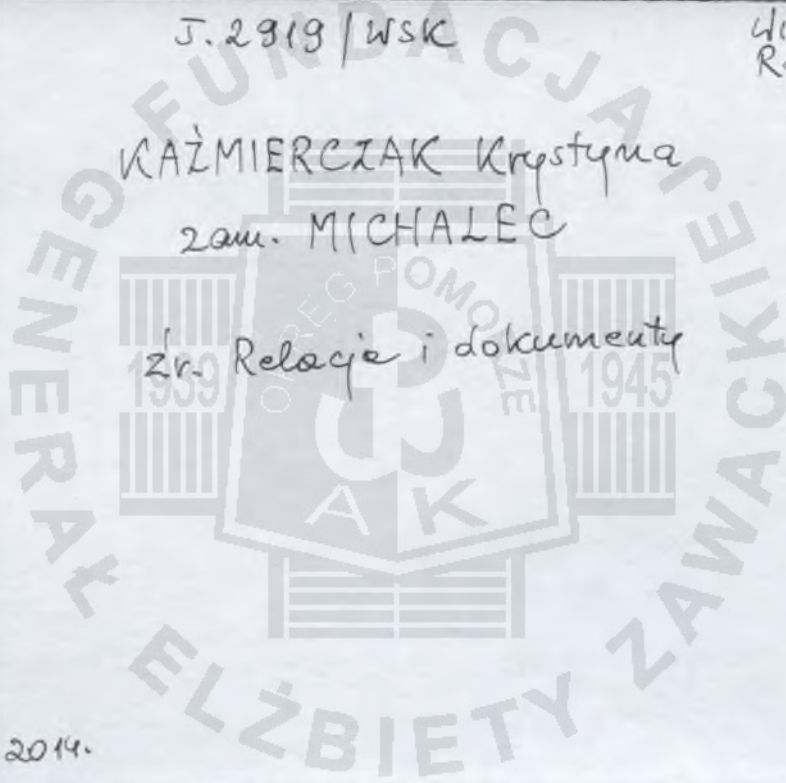 J. 2919 / WSK
KAŹMIERCZAK Krystyna
zam. MICHALEC
źr. Relacja i dokumenty
2014.
FUNDACJA GENERAŁ ELŻBIETY ZAWACKIEJ
OKRĘG POMORZE
1939
1945
AK